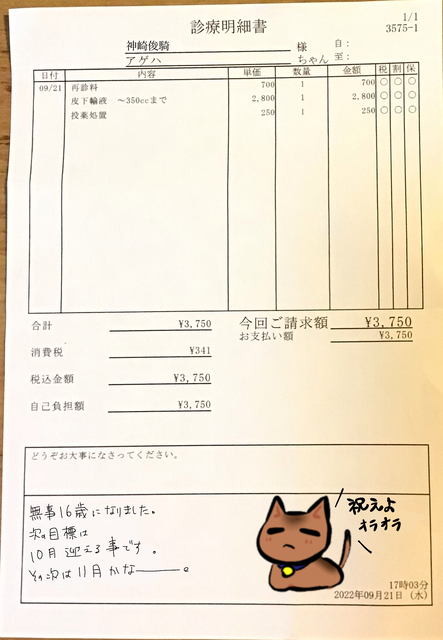 診療明細書
1/1
3575-1
神崎俊騎 様 自:
アゲハ ちゃん 至:
日付 内容 単価 数量 金額 税 割 保
09/21 再診料 700 1 700 〇 〇 〇
皮下輸液 ～350ccまで 2,800 1 2,800 〇 〇 〇
投薬処置 250 1 250 〇 〇 〇
合計 ¥3,750 今回ご請求額 ¥3,750
お支払い額 ¥3,750
消費税 ¥341
税込金額 ¥3,750
自己負担額 ¥3,750
どうぞお大事になさってください。
無事16歳になりました。
次の目標は
10月迎える事です。
その次は11月かなー。
祝えよ
オラオラ
17時03分
2022年09月21日 (水)